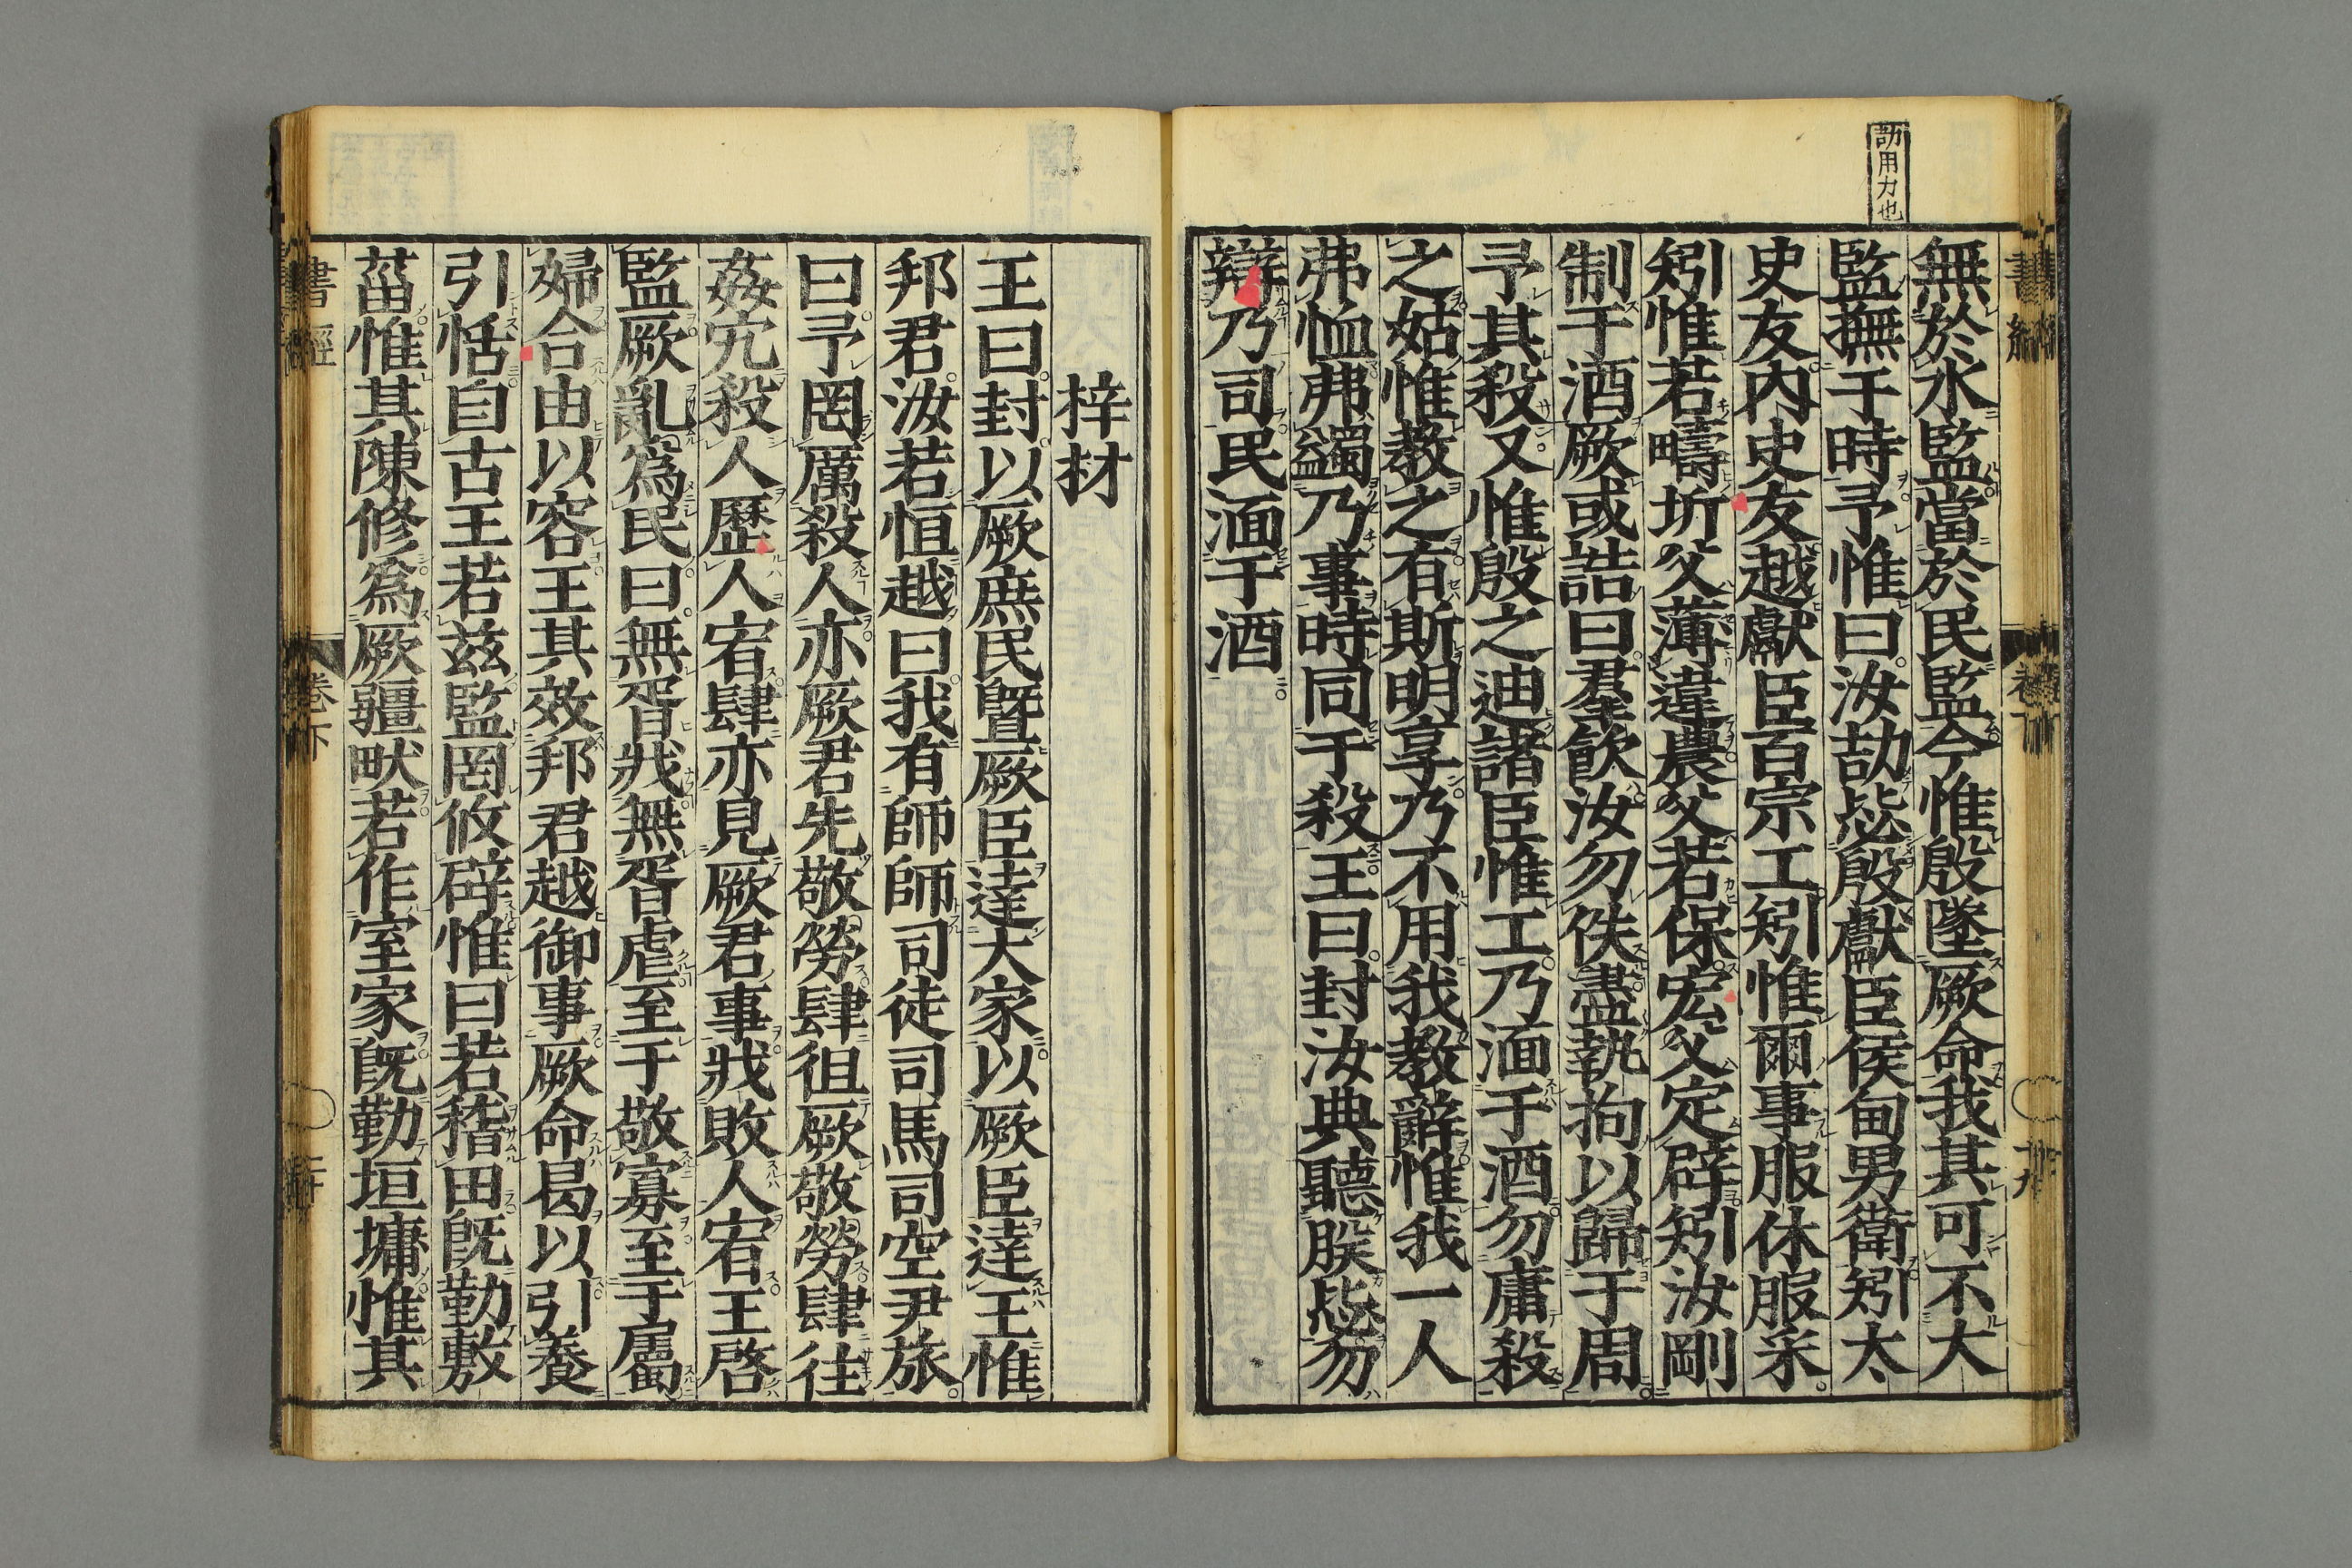 劼用力也
無於水監當於民監今惟殷墜厥命我其可不大
監撫于時予惟曰汝劼毖殷獻臣侯甸男衛矧太
史友內史友越獻臣百宗工矧惟爾事服休服采
矧惟若疇圻父薄違農父若保宏父定辟矧汝剛
制于酒厥或誥曰羣飲汝勿佚盡執拘以歸于周
予其殺又惟殷之迪諸臣惟工乃湎于酒勿庸殺
之姑惟教之有斯明享乃不用我教辭惟我一人
弗恤弗蠲乃事時同于殺王曰封汝典聽朕毖勿
辯乃司民湎于酒
梓材
王曰封以厥庶民曁厥臣達大家以厥臣達王惟
邦君汝若恒越曰我有師師司徒司馬司空尹旅
曰予罔厲殺人亦厥君先敬勞肆徂厥敬勞肆往
姦宄殺人歷人宥肆亦見厥君事戕敗人宥王啓
監厥亂爲民曰無胥戕無胥虐至于敬寡至于屬
婦合由以容王其效邦君越御事厥命曷以引養
引恬自古王若茲監罔攸辟惟曰若稽田旣勤敷
菑惟其陳修爲厥疆畎若作室家旣勤垣墉惟其
書經
卷下
二十